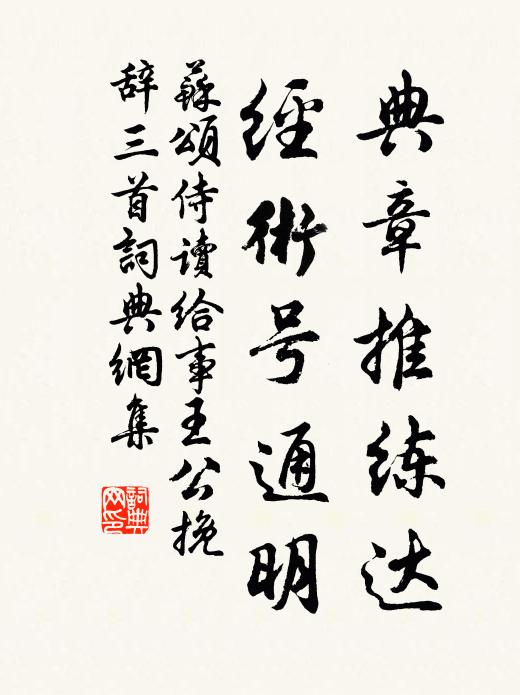 典章推练达
經術号通明
蘇頌侍讀給事王公挽
辞三首詞典網集
詞典网印